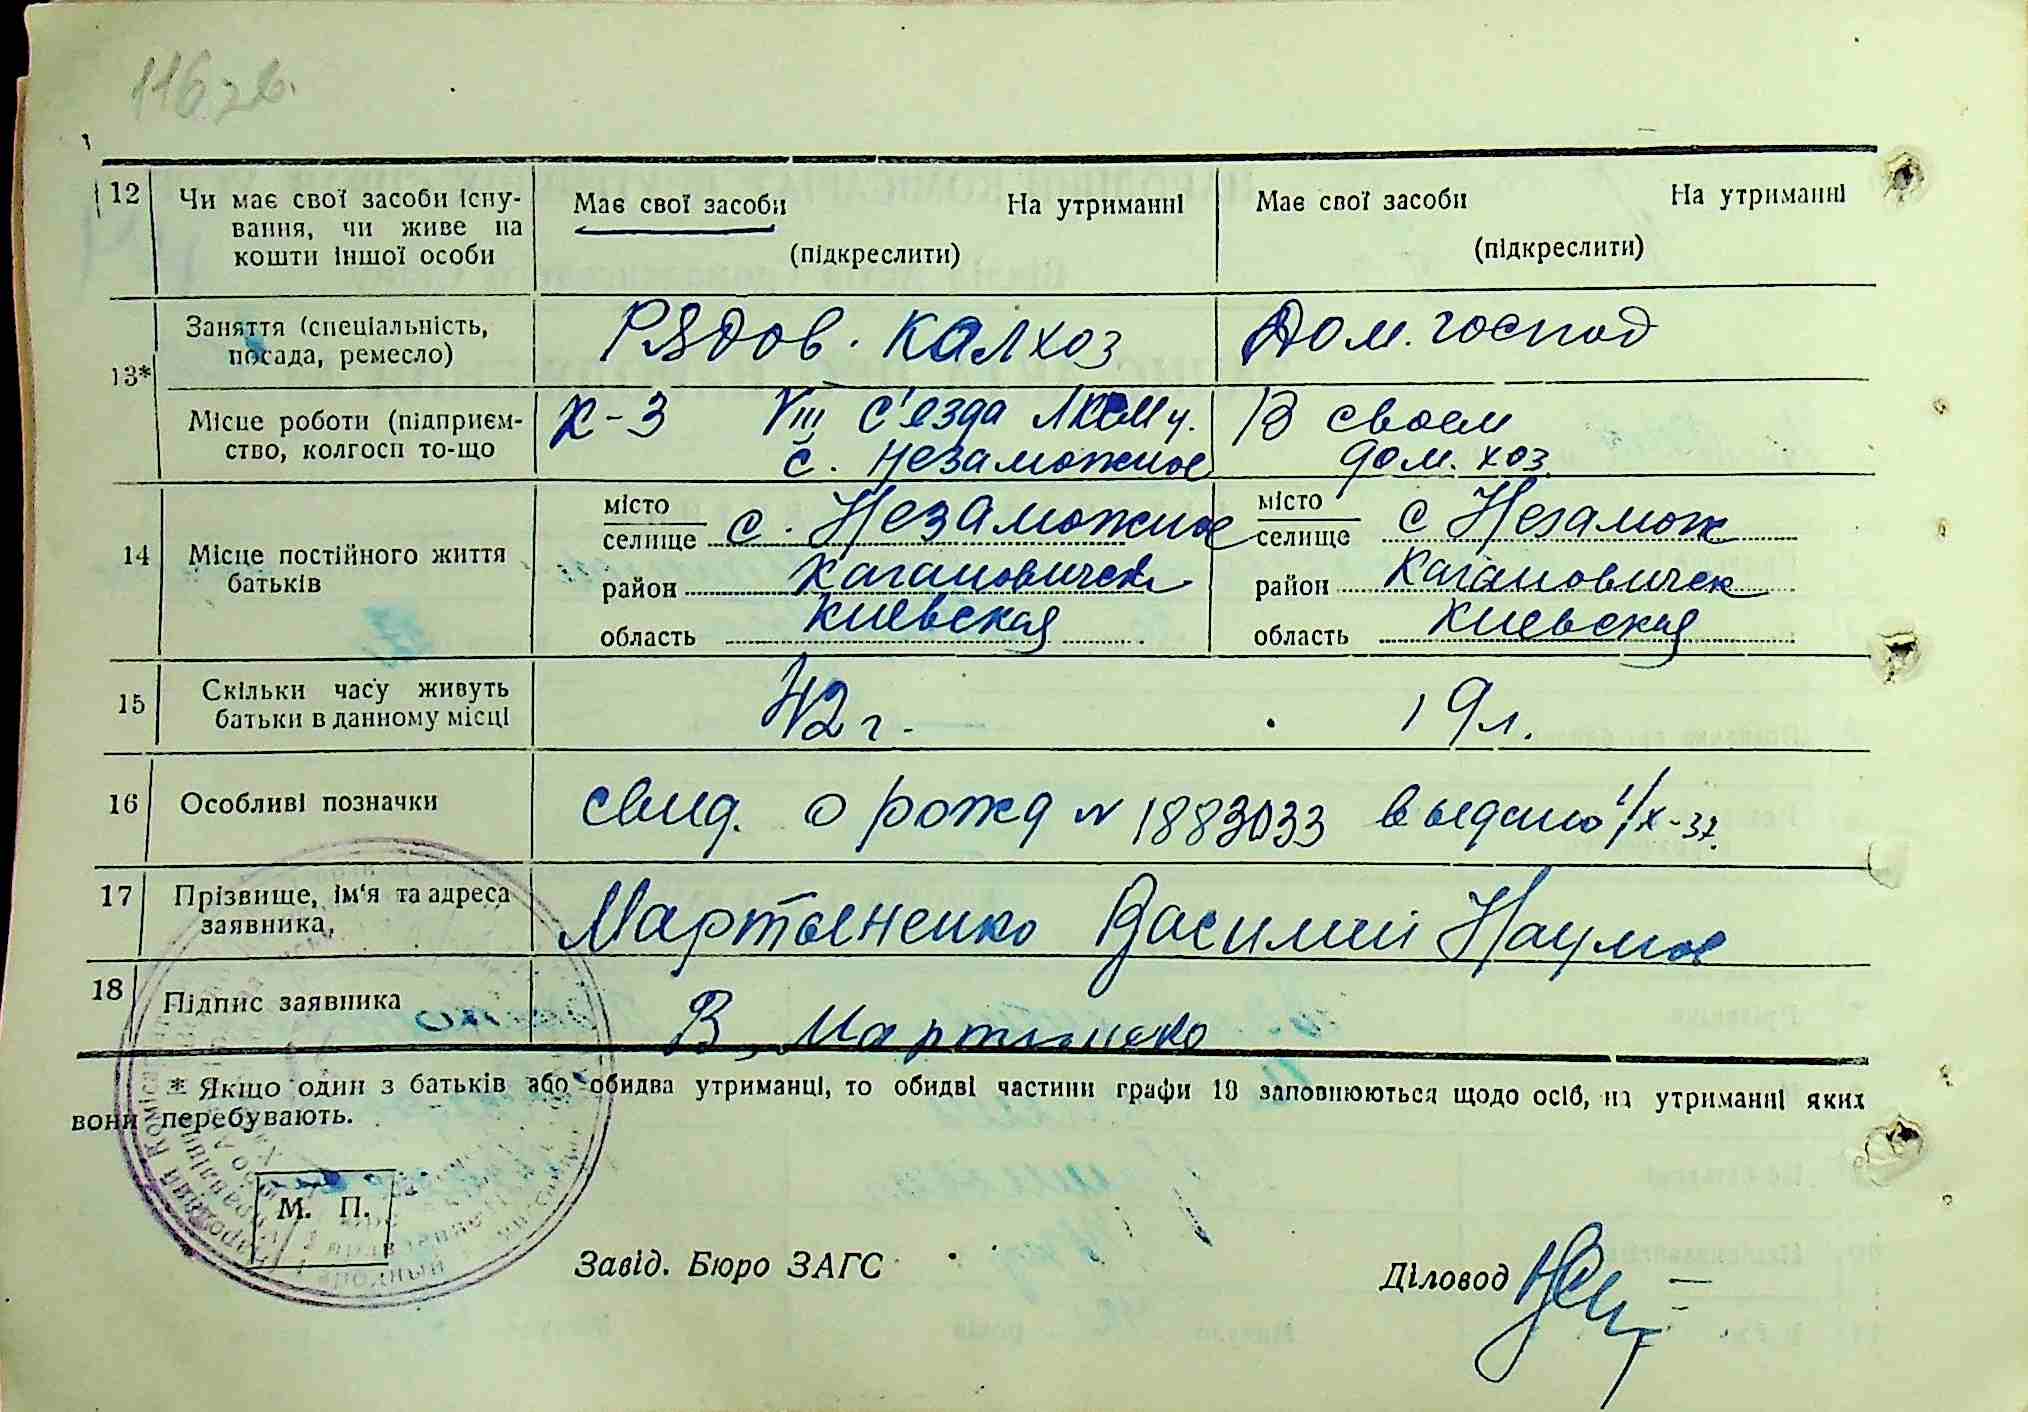 116 зв.
12 Чи має свої засоби існу- Має свої засоби На утриманні Має свої засоби На утриманні
вання, чи живе на (підкреслити) (підкреслити)
кошти іншої особи
13* Заняття (спеціальність, Рядов. калхоз Дом. господ
посада, ремесло)
Місце роботи (підприєм- К-З VIII с'езда ЛКСМУ. В своем
ство, колгосп то-що с. Незаможное дом. хоз.
14 Місце постійного життя місто с. Незаможное місто с Незамож
батьків селище селище
район Кагановическ район Кагановическ
область Киевская область Киевская
15 Скільки часу живуть 42 г. 19 л.
батьки в данному місці
16 Особливі позначки свид. о рожд № 1883033 выдано 1/X-37.
17 Прізвище, ім'я та адреса Мартыненко Василий Наумов
заявника,
18 Підпис заявника В. Мартыненко
* Якщо один з батьків або обидва утриманці, то обидві частини графи 13 заповнюються щодо осіб, на утриманні яких
вони перебувають.
М. П.
Завід. Бюро ЗАГС Діловод